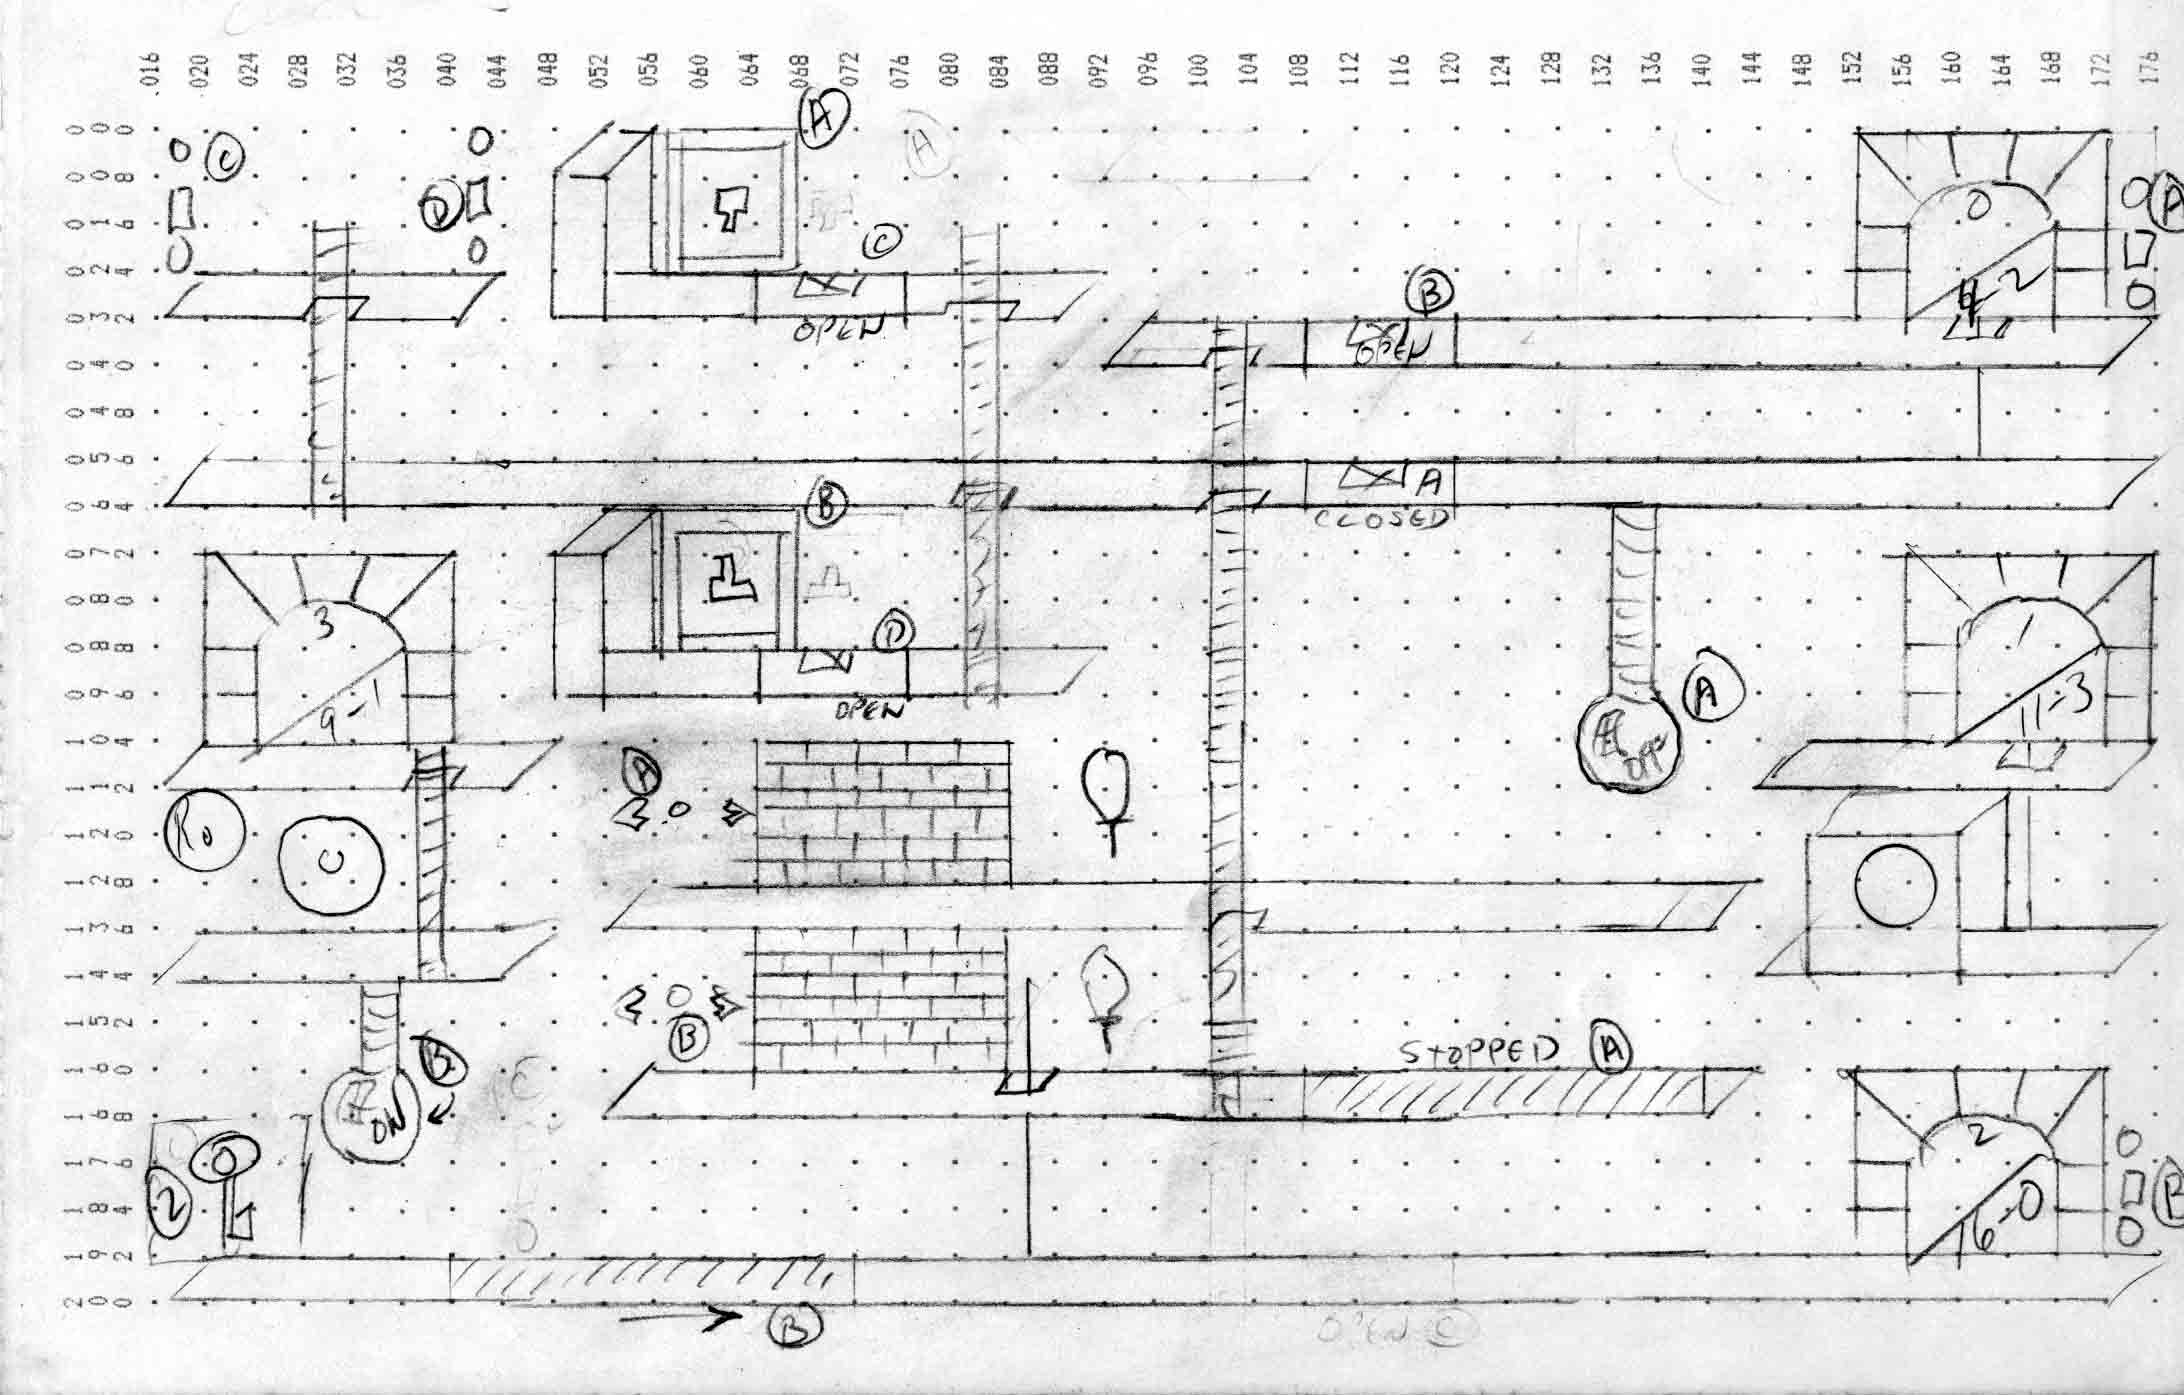 016 020 024 028 032 036 040 044 048 052 056 060 064 068 072 076 080 084 088 092 096 100 104 108 112 116 120 124 128 132 136 140 144 148 152 156 160 164 168 172 176
000
008
016
024
032
040
048
056
064
072
080
088
096
104
112
120
128
136
144
152
160
168
176
184
192
200
C
D
A
A
C
OPEN
B
OPEN
0
4-2
A
A
CLOSED
B
D
OPEN
3
9-1
A
OFF
1
11-3
R0
C
A
0
0
B
B
ON
STOPPED A
2
16-0
B
2
B